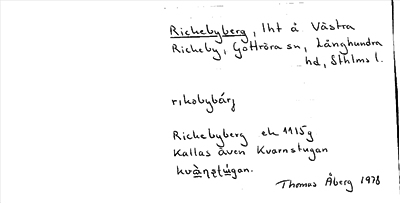 Rickebyberg, lht å Västra
Rickeby, Gottröra sn, Långhundra
hd, Sthlms l.
rıkəbybárj
Rickebyberg ek 1115g
Kallas även Kvarnstugan
Thomas Åberg 1978